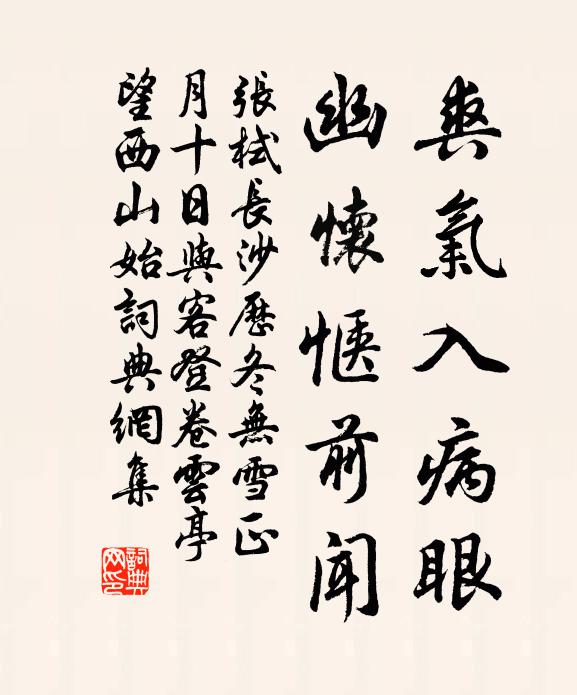 爽氣入病眼
幽懷愜前聞
張栻長沙歷冬無雪正
月十日與客登卷雲亭
望西山始詞典網集
詞典网印